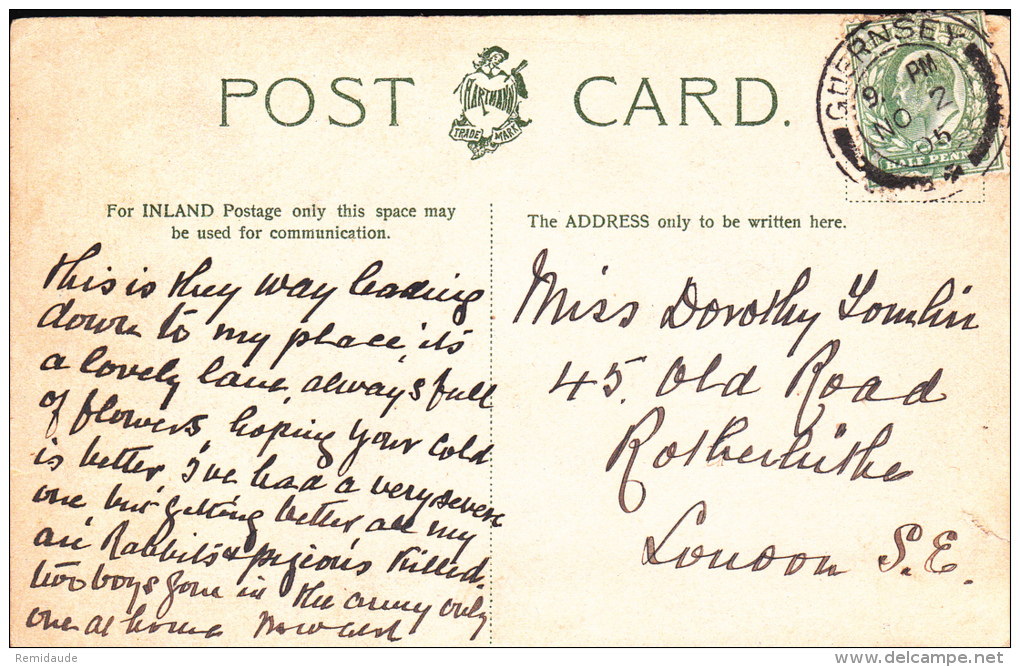 POST CARD.
HARTMANN
TRADE MARK
GUERNSEY
9 PM
NO 2
05
HALF PENNY
For INLAND Postage only this space may
be used for communication.
The ADDRESS only to be written here.
this is they way leading
down to my place, it's
a lovely lane, always full
of flowers, hoping your cold
is better, I've had a very severe
one but getting better, all my
Rabbits & pigeons killed.
two boys gone in the army only
one at home
Miss Dorothy Tomlin
45. Old Road
Rotherhithe
London S.E.
Remidaude
delcampe.net